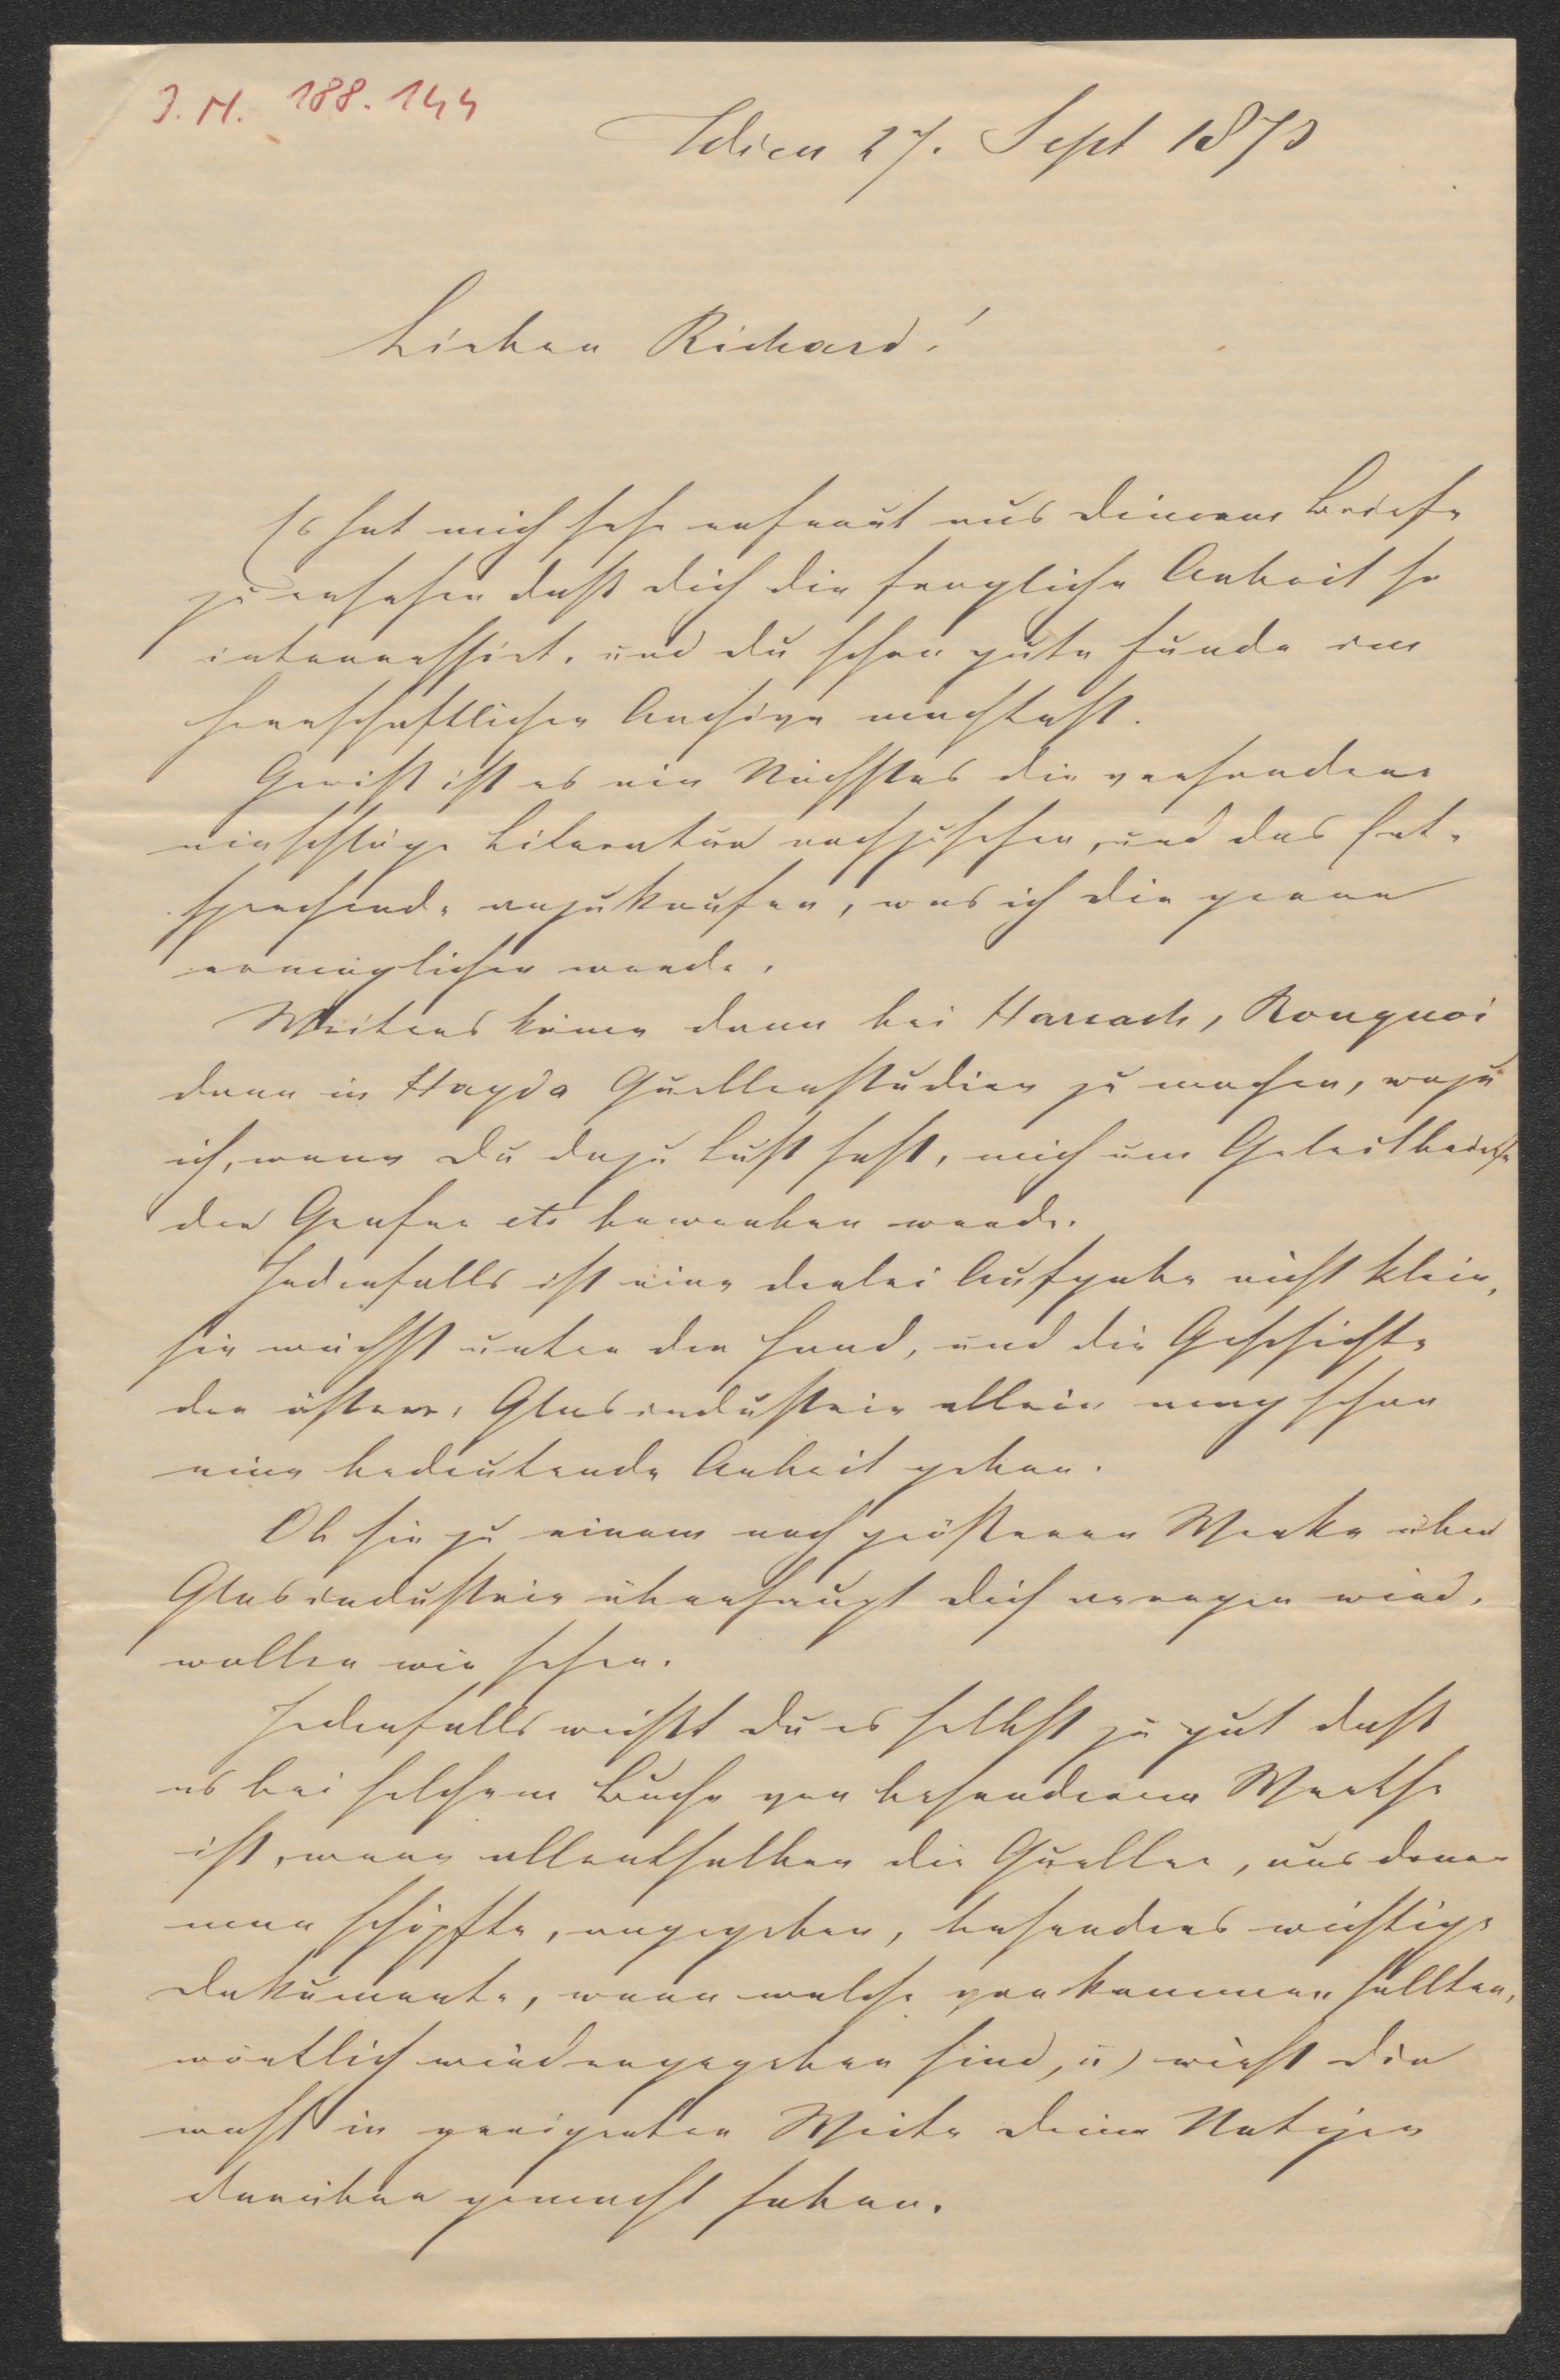 J. N. 188.144
Wien 27. Sept 1873
Lieber Richard!
Es hat mich sehr erfreut aus Deinem Briefe
zu ersehen daß dich die fragliche Arbeit so
interressirt, und du schon gute Funde im
herrschaftlichen Archive machtest.
Gewiß ist es ein Nächstes die vorhandene
einschlägige Literatur nachzusehen, und das Ent-
sprechende anzukaufen, was ich dir gerne
ermöglichen werde.
Weiters käme dann bei Harrach, Bouquoi
dann in Hayda Quellenstudien zu machen, wozu
ich, wenn Du dazu Lust hast, mich um Geleitbriefe
der Grafen etc bewerben werde.
Jedenfalls ist eine derlei Aufgabe nicht klein,
sie wächst unter der Hand, und die Geschichte
der österr. Glasindustrie allein mag schon
eine bedeutende Arbeit geben.
Ob sie zu einem noch größeren Werke über
Glasindustrie überhaupt dich anregen wird,
wollen wir sehen.
Jedenfalls weißt du es selbst zu gut daß
es bei solchem Buche von besonderem Werthe
ist, wenn allenthalben die Quellen, aus denen
man schöpfte, angegeben, besonders wichtige
Dokumente, wenn welche vorkommen sollten,
wörtlich wiedergegeben sind, u) wirst dir
wohl in geeigneter Weise deine Notizen
darüber gemacht haben.